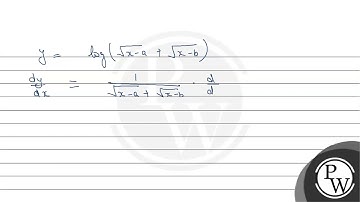 y = log(√x-a + √x-b)
dy/dx = 1/(√x-a + √x-b) · d/d
PW
PW